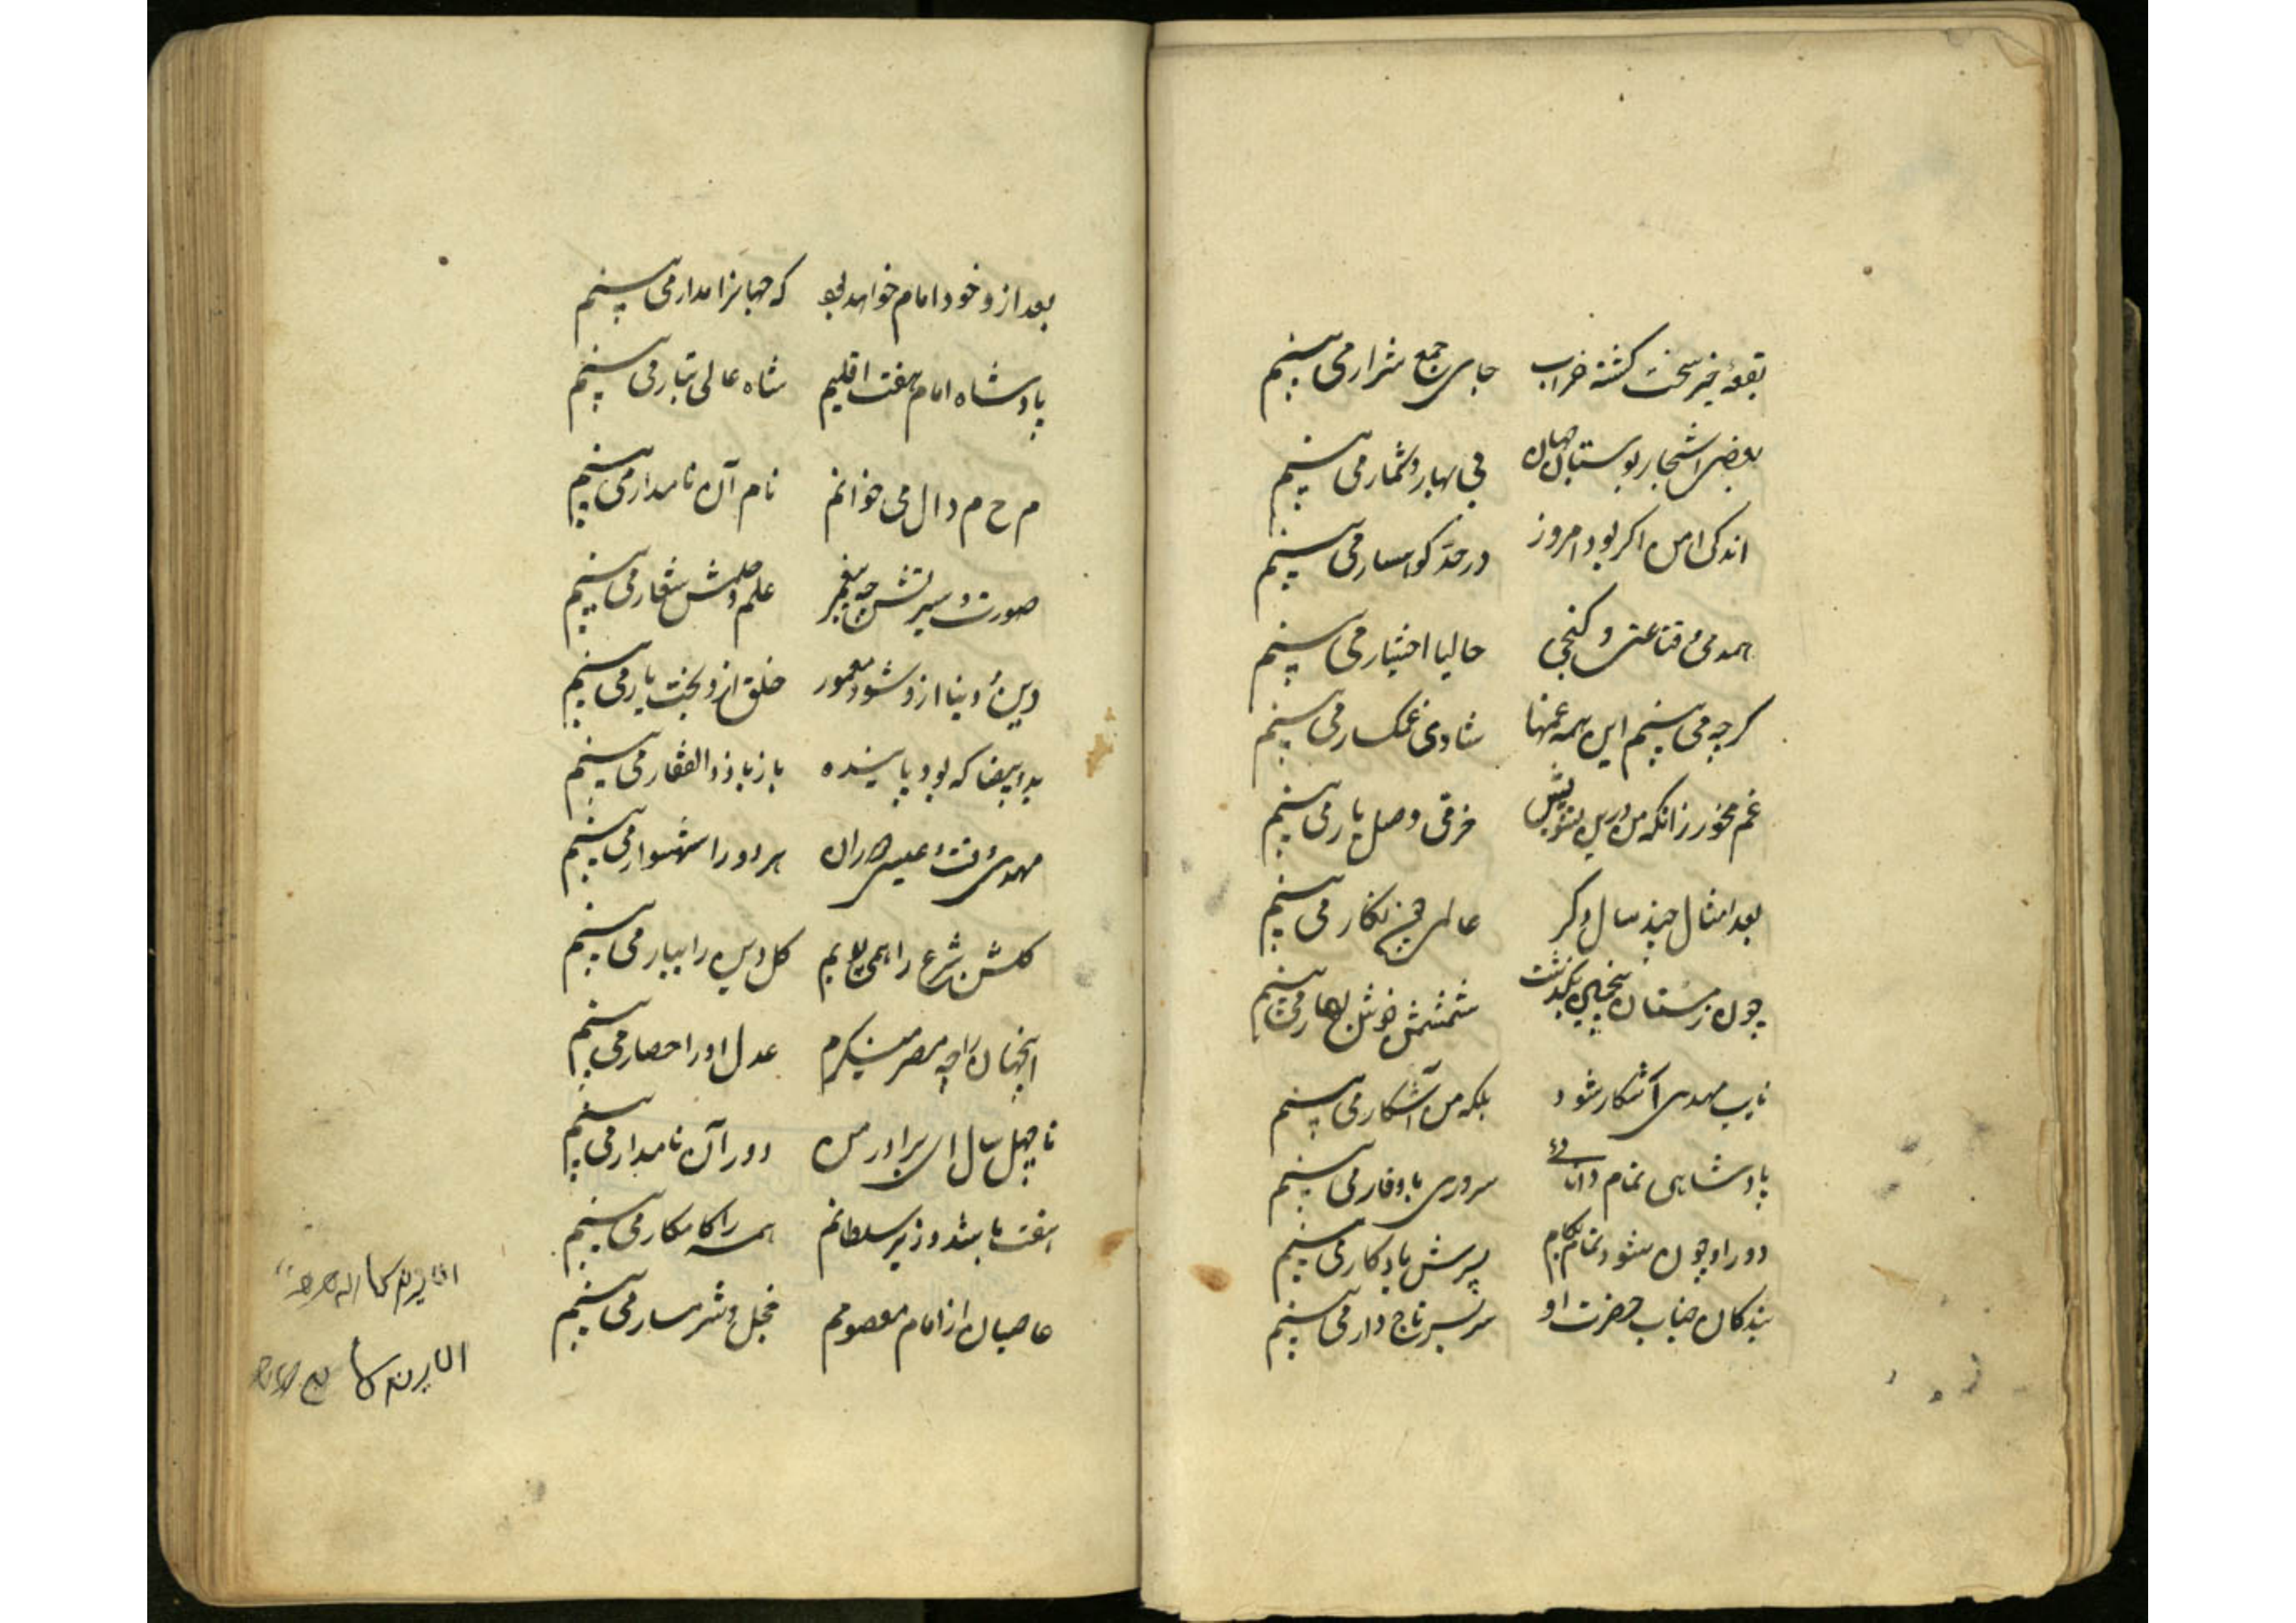 بقعهٔ خیر سخت کشته خراب جای جمع شرار می بینم
بعضی اشجار بوستان جهان بی بهار و ثمار می بینم
اندکی امن اکر بود امروز در حد کوهسار می بینم
همدمی و قناعتی و کنجی حالیا اختیار می بینم
کرچه می بینم این همه غمها شادی غمکسار می بینم
غم مخور زانکه من درین تشویش خرقی وصل یار می بینم
بعد امثال چند سال دکر عالمی چون نکار می بینم
چون زمستان پنجمین بکذشت ششمش خوش بهار می بینم
نایب مهدی آشکار شود بلکه من آشکار می بینم
پادشاهی تمام دانائی سروری باوقار می بینم
دور او چون شود تمام بکام پسرش یادکار می بینم
بندکان جناب حضرت او سر بسر تاج دار می بینم
بعد ازو خود امام خواهد بود که جهانرا مدار می بینم
پادشاه امام هفت اقلیم شاه عالی تبار می بینم
م ح م دال می خوانم نام آن نامدار می بینم
صورت و سیرتش چو پیغمبر علم و حلمش شعار می بینم
دین و دنیا ازو شود معمور خلق ازو بخت یار می بینم
ید بیضا که بود پاینده باز با ذو الفقار می بینم
مهدی وقت و عیسی دوران هر دو را شهسوار می بینم
کلشن شرع را همی بویم کل دین را ببار می بینم
اینجهان را چو مصر مینکرم عدل او را حصار می بینم
تا چهل سال ای برادر من دور آن نامدار می بینم
هفت باشد وزیر سلطانم همه را کامکار می بینم
عاصیان از امام معصومم خجل و شرمسار می بینم